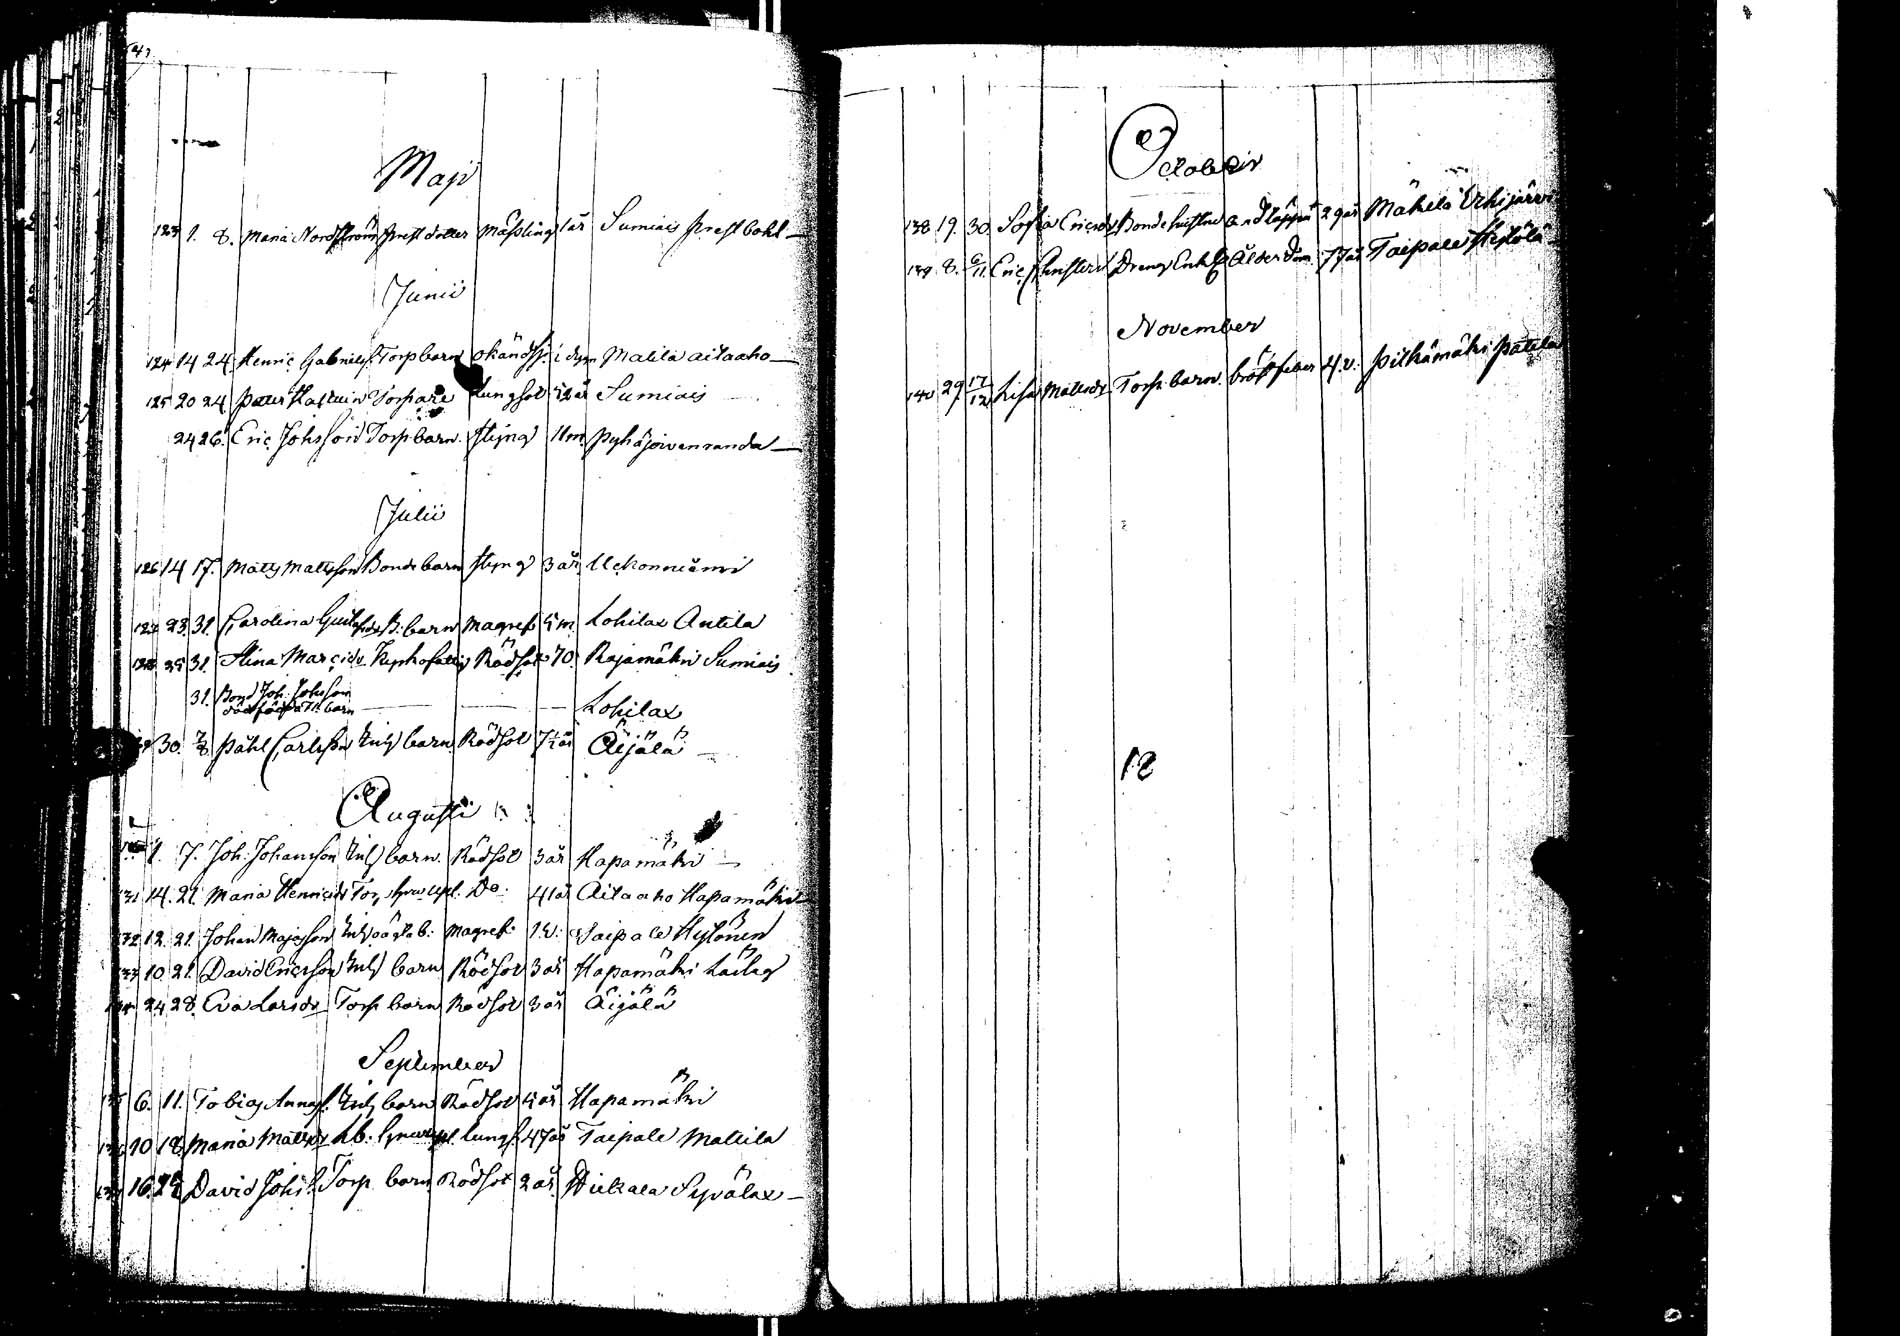 Maji
123 1. 8. Maria Nordström Prest dotter Mässling 1 år Sumiais Prestbohl
Junii
124 14 24 Henric Gabriels. Torp barn okänd sj. 1 dygn Matila aitaaho
125 20 24 Peter Torpare Lungsot 52 år Sumiais
24 26. Eric Johsson Torp barn. styng 11 m. Pyhäjoivenranda
Julii
126 14 17. Matts Mattsson Bonde barn styng 3 år. Uckonniämi
127 23. 31. Carolina Gustafsdr B. barn Magref 5 m. Lohilax Antila
128 25 31. Stina Marcidr Rödsot 70. Rajamäki Sumiais
31. Bond Joh: Johsson
dödfödt barn Lohilax
30. 7/8 Påhl Carlsson Inhs barn Rödsot 7 1/2 år Äijälä
Augusti
1. 7. Joh. Johansson Inhs barn. Rödsot 3 år Hapamäki
131 14. 21. Maria Henricsdr Do. 41 år Aitaaho Hapamäki
132 12. 21. Johan Majasson Inhs oägta b: Magref. 1 v: Taipale Hytönen
133 10 21. David Ericsson Inhs barn Rödsot 3 år Hapamäki
134 24 28. Eva Larsdr Torp barn Rödsot 3 år Äijälä
September
135 6. 11. Tobias Annas. Inhs barn Rödsot 5 år Hapamäki
136 10 18. Maria Mattsdr Lungs. 47 år Taipale Matila
137 16. David Johs. Torp. barn Rödsot 2 år. Hiekala Syvälax
October
138 19. 30. Sofia Ericsdr Bonde hustru Andtäppa 29 år Mäkelä Erkijärvi
139 8. 6/11. Eric Christers. Dreng Enkl. Ålderdom. 77 år Taipale
November
140 29 17/12 Lisa Mattsdr Torp. barn. bröstfeber 4 v. Pitkämäki Patila
18